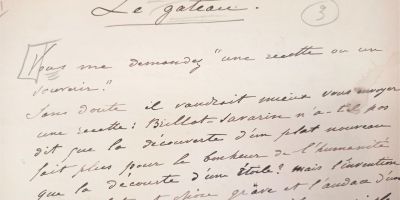 Le gateau.
3
Vous me demandez "une recette ou un
souvenir."
Sans doute il vaudrait mieux vous envoyer
une recette: Brillat-Savarin n'a-t-il pas
dit que la découverte d'un plat nouveau
fait plus pour le bonheur de l'humanité
que la découverte d'une étoile? mais l'invention
et l'audace d'un